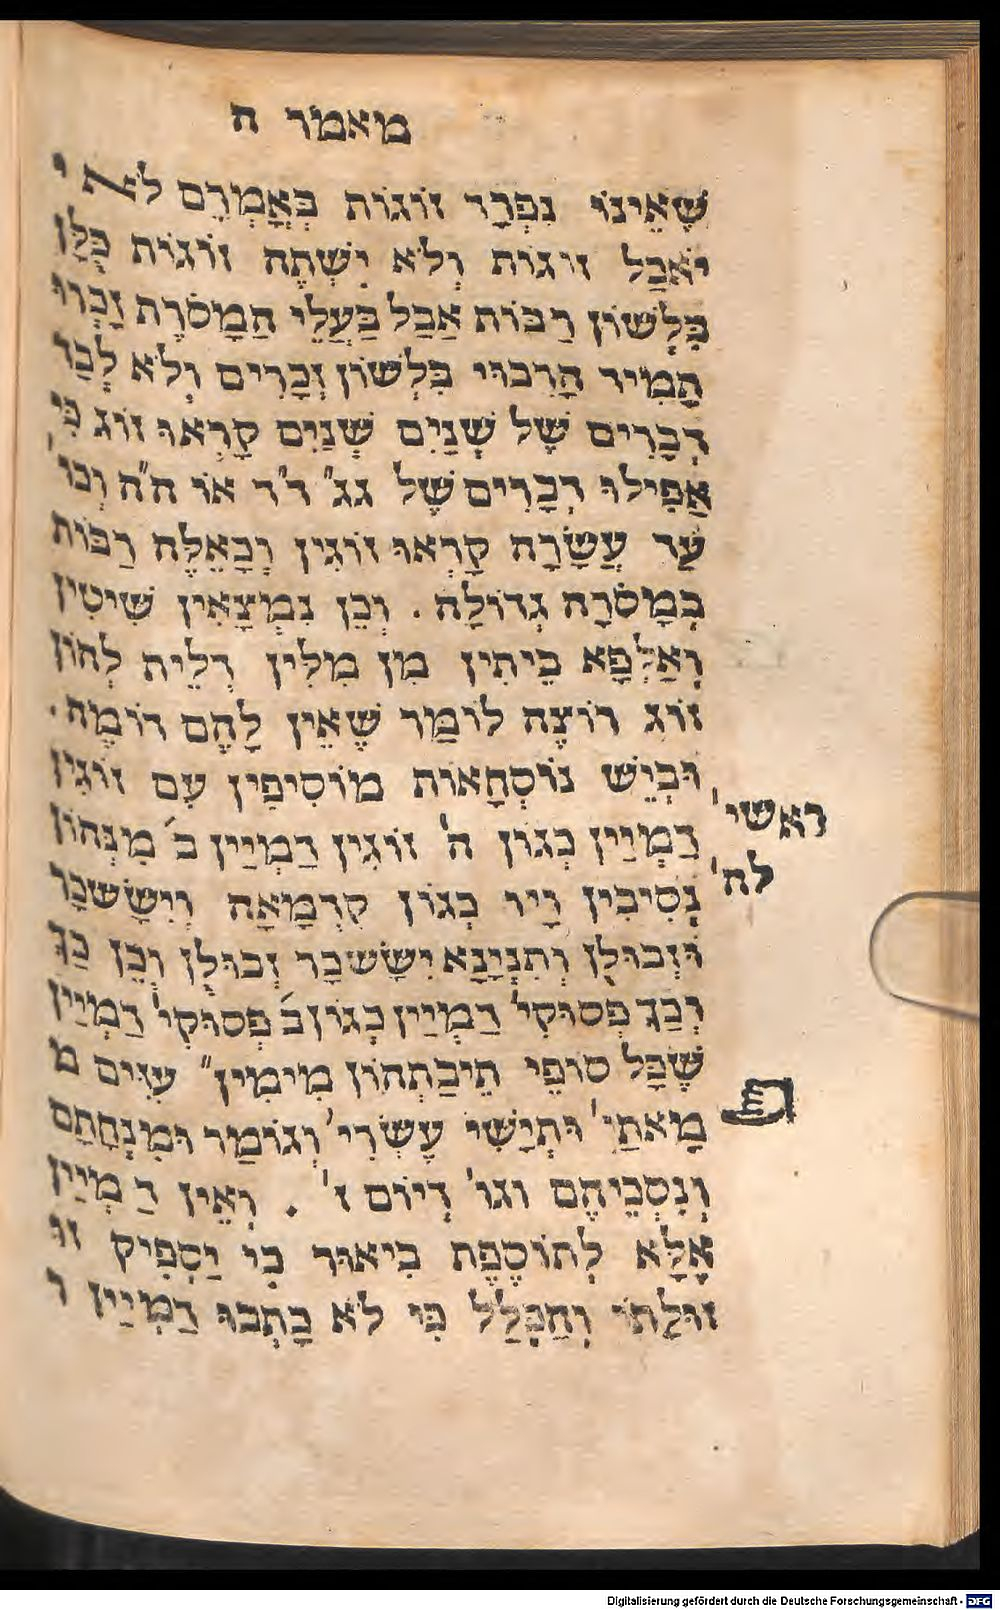 מאמר ה
שֶׁאֵינוֹ נִפְרָד זוֹגוֹת כְּאָמְרָם לֹא
יֹאכַל זוגוֹת וְלֹא יִשְׁתֶּה זוֹגוֹת כֻּלָּן
בִּלְשׁוֹן רַבּוֹת אֲבָל בַּעֲלֵי הַמָּסֹרֶת זָכְרוּ
תָּמִיד הָרִבּוּי בִּלְשׁוֹן זְכָרִים וְלֹא לְבַד
דְּבָרִים שֶׁל שְׁנַיִם שְׁנַיִם קָרְאוּ זוֹג כִּי
אֲפִילוּ דְּבָרִים שֶׁל גג״ ד״ד אוֹ ה״ה וְכו׳
עַד עֲשָׂרָה קָרְאוּ זוֹגִין וְכָאֵלֶּה רַבּוֹת
בְּמָסֹרָה גְדוֹלָה . וְכֵן נִמְצָאִין שִׁיטִין
וְאַלְפָא בֵיתִין מִן מִלִּין דְּלֵית לְהוֹן
זוֹג רוֹצֶה לוֹמַר שֶׁאֵין לָהֶם דּוֹמֶה .
וּבְיֵשׁ נוֹסְחָאוֹת מוֹסִיפִין עִם זוֹגִין
דַּמְיַין כְּגוֹן ה׳ זוֹגִין דַּמְיַין ב׳ מִנְּהוֹן
נְסִיבִין וָיו כְּגוֹן קַדְמָאָה וְיִשָּׂשכָר
וּזְבוּלֻן וְתִנְיָנָא יִשָּׂשכָר זְבוּלֻן וְכֵן כַּךְ
וְכַךְ פְּסוּקִי׳ דַּמְיַין כְּגוֹן ב׳ פְּסוּקִי׳ דַּמְיַין
שֶׁכָּל סוֹפֵי תֵיבַתְהוֹן מִימִין״ עִזִּים
מָאתַיִ׳ וּתְיָשִׁי׳ עֶשְׂרִי׳ וְגוֹמַר וּמִנְחָתָם
וְנִסְכֵּיהֶם וגו׳ דְּיוֹם ז׳ . וְאֵין דַּמְיַין
אֶלָּא לְתוֹסֶפֶת בִּיאוּר כִּי יַסְפִּיק זוּ
זוּלָתוֹ וְהַכְּלָל כִּי לֹא כָתְבוּ דַּמְיַין
ראשי׳
לה׳